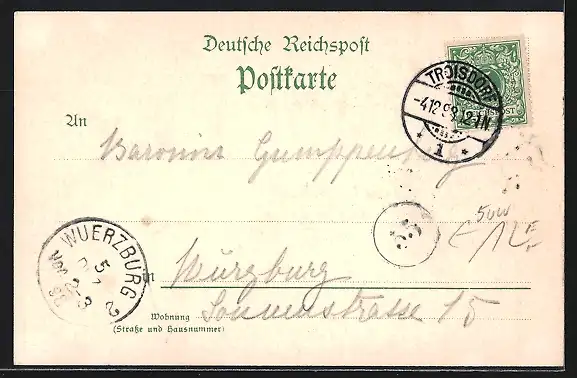 Deutsche Reichspost
Postkarte
TROISDORF
-4.12.98.12-1N.
* 1 *
An
Baronin Gumppenberg
WUERZBURG 2
5
in Würzburg
Sonnenstrasse 15
Wohnung
(Straße und Hausnummer)